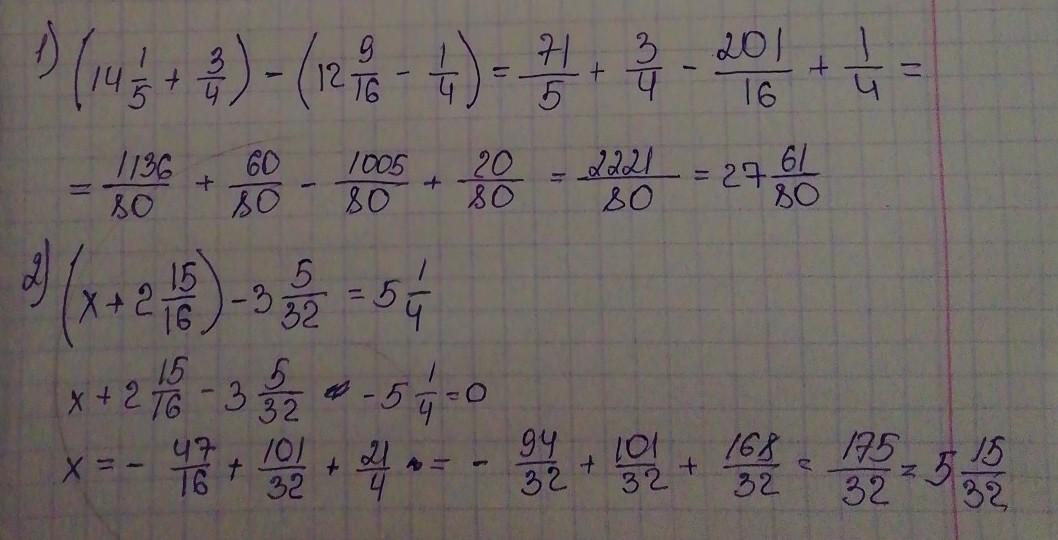 1) (14 1/5 + 3/4) - (12 9/16 - 1/4) = 71/5 + 3/4 - 201/16 + 1/4 =
= 1136/80 + 60/80 - 1005/80 + 20/80 = 2221/80 = 27 61/80
2) (x + 2 15/16) - 3 5/32 = 5 1/4
x + 2 15/16 - 3 5/32 - 5 1/4 = 0
x = - 47/16 + 101/32 + 21/4 = - 94/32 + 101/32 + 168/32 = 175/32 = 5 15/32